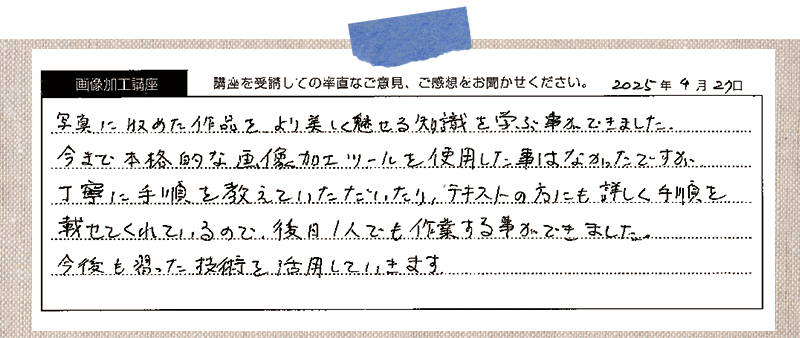 画像加工講座 講座を受講しての率直なご意見、ご感想をお聞かせください。 2025年 9月 27日
写真に収めた作品を、より美しく魅せる知識を学ぶ事ができました。
今まで本格的な画像加工ツールを使用した事はなかったですが
丁寧に手順を教えていただいたり、テキストの方にも詳しく手順を
載せてくれているので、後日1人でも作業する事ができました。
今後も習った技術を活用していきます